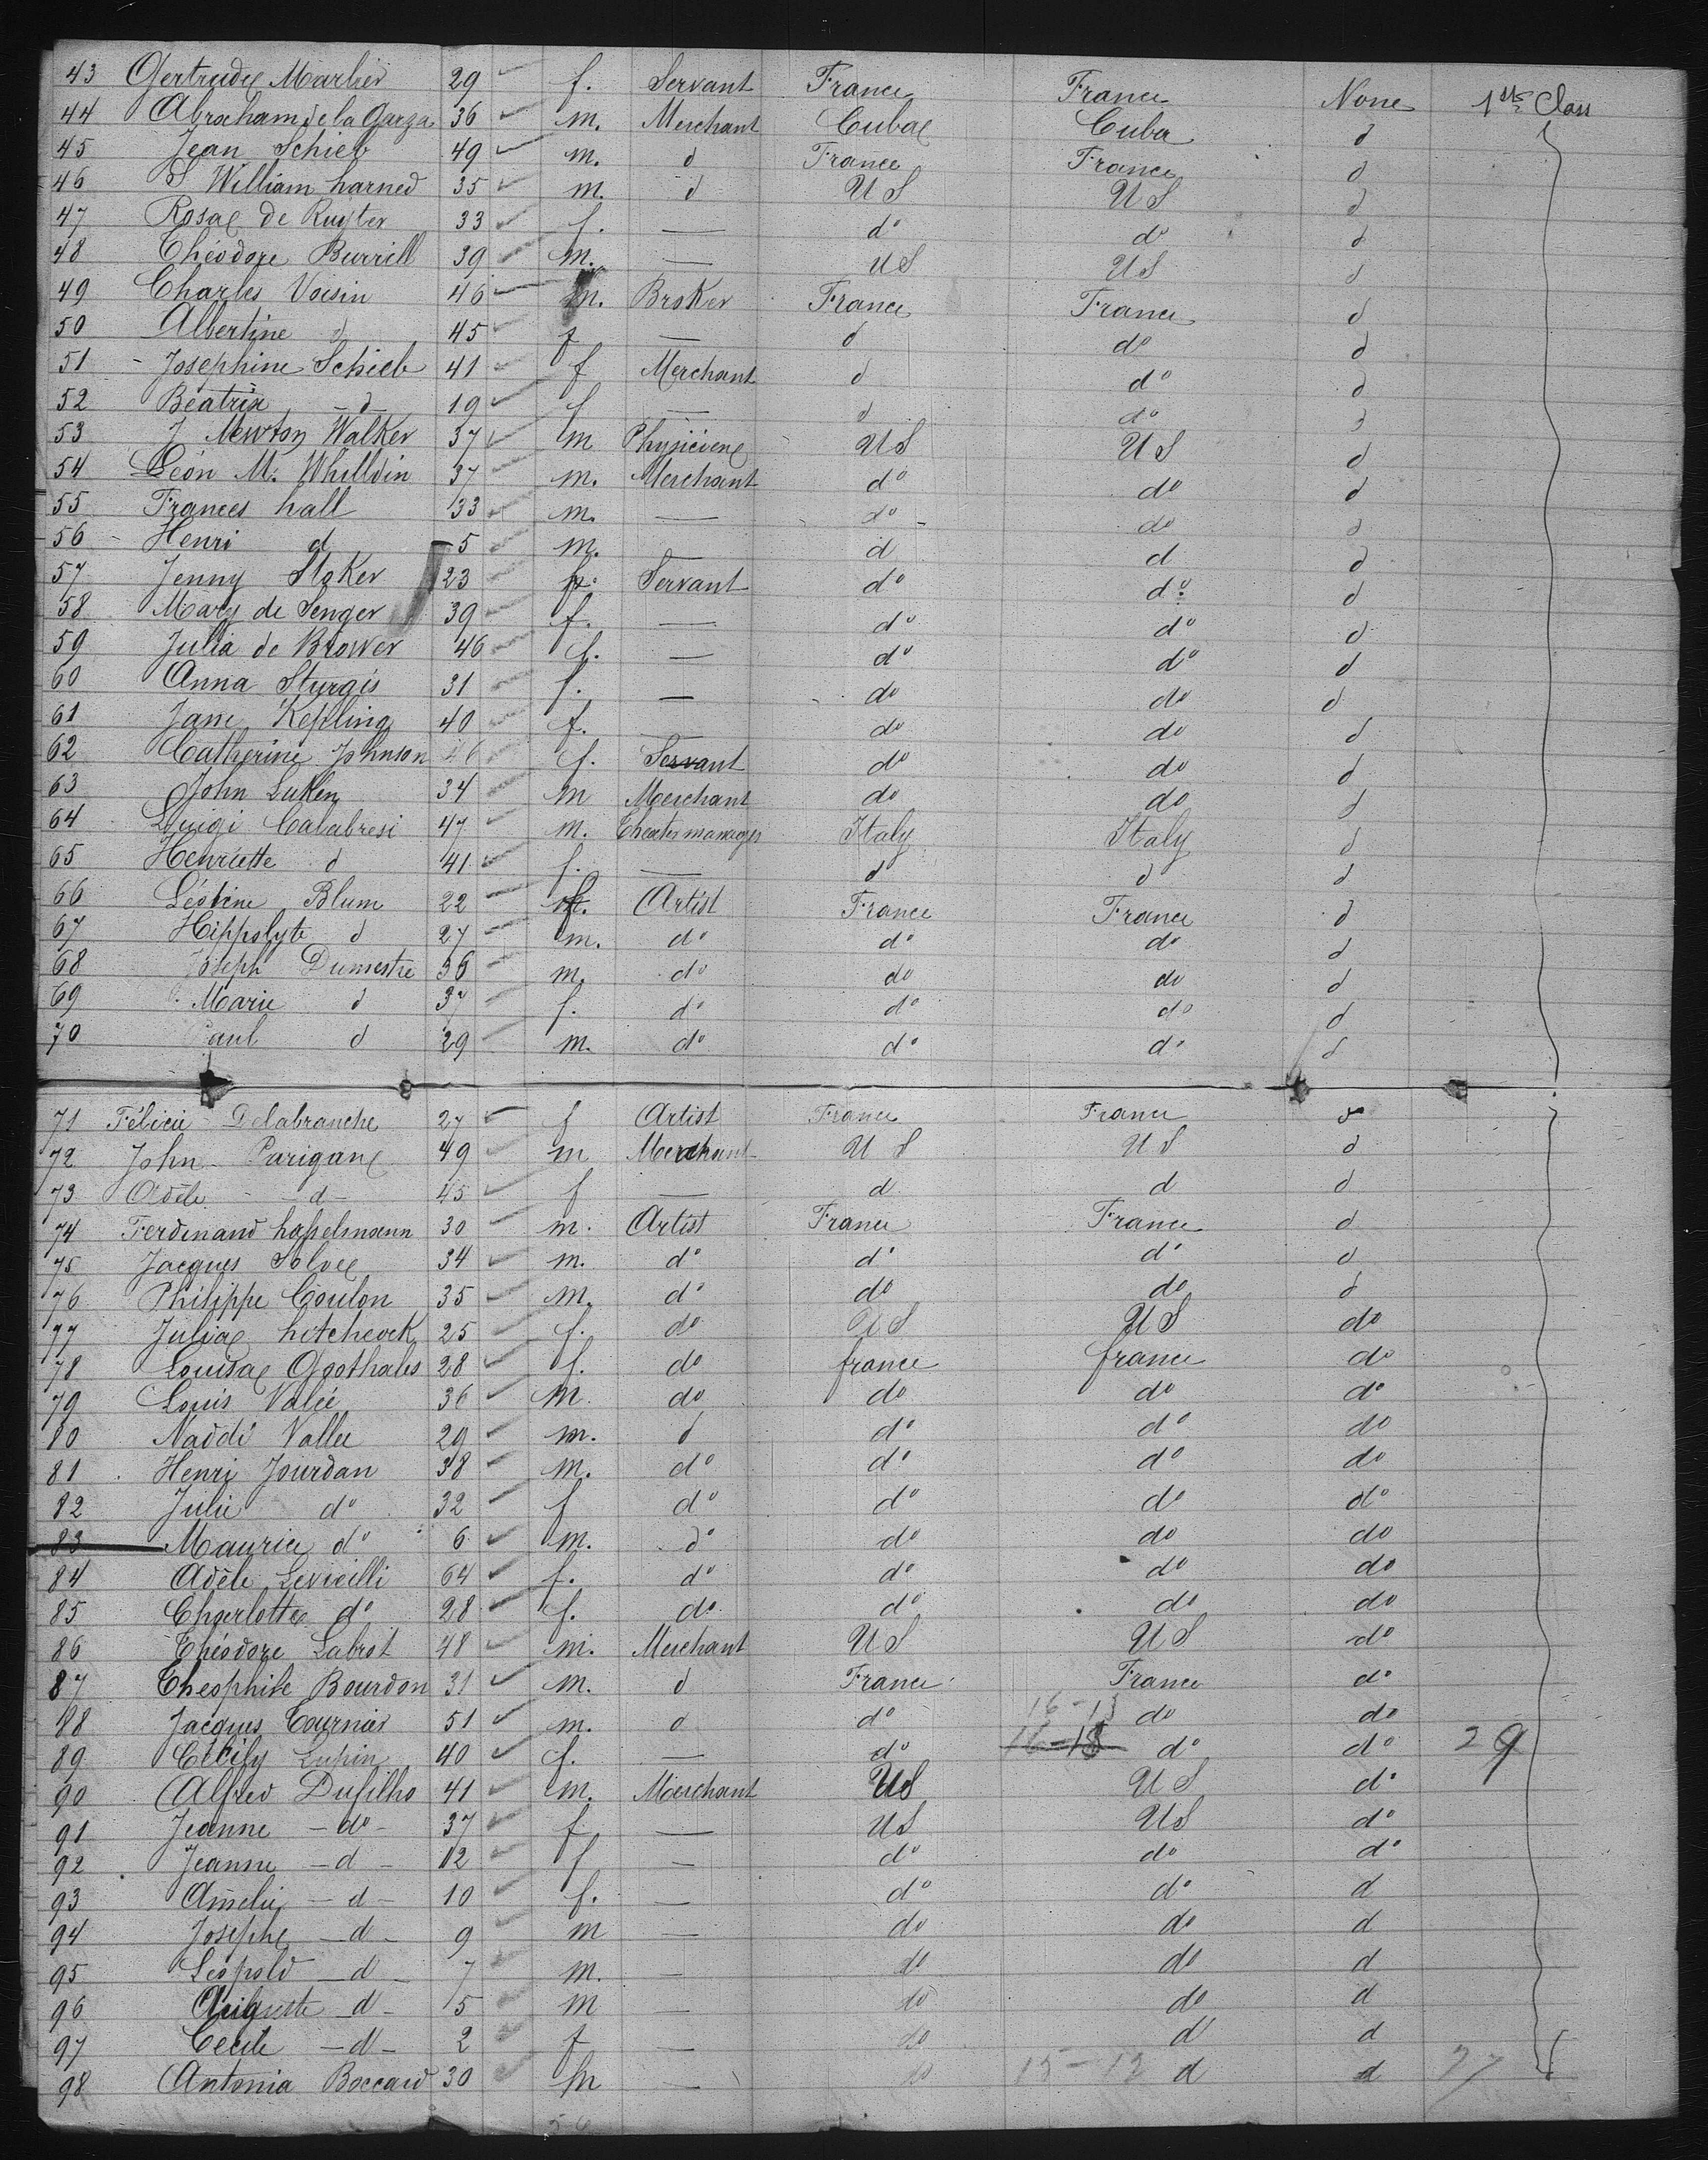 43 Gertrude Marlier 29 f. Servant France France None 1st Class
44 Abraham de la Garza 36 m. Merchant Cuba Cuba d
45 Jean Schieb 49 m. d France France d
46 S William harned 35 m. d US US d
47 Rosa de Ruyter 33 f. — do do d
48 Théodore Burrill 39 m. — US US d
49 Charles Voisin 46 m. Broker France France d
50 Albertine d 45 f — d do d
51 Josephine Schieb 41 f Merchant d do d
52 Béatrix - d - 19 f — d do d
53 J Newton Walker 37 m US US d
54 Léon M. Whilldin 37 m. Merchant do do d
55 Frances hall 33 m. — do do d
56 Henri d 5 m. d d d
57 Jenny Stoker 23 f. Servant do do d
58 Mary de Senger 39 f. — do do d
59 Julia de Brower 46 f. — do do d
60 Anna Sturgis 31 f. — do do d
61 Jane Kepling 40 f. do do d
62 Catherine Johnson f. Servant do do d
63 John Luken 34 m Merchant do do d
64 Luigi Calabresi 47 m. Theater manager Italy Italy d
65 Henriette d 41 f. — d d d
66 Léonine Blum 22 f. Artist France France d
67 Hippolyte d 27 m. do do do d
68 Joseph Dumestre 36 m. do do do d
69 Marie d 37 f. do do do d
70 Paul d 29 m. do do do d
71 Félicie Delabranche 27 f Artist France France d
72 John Parigan 49 m Merchant US US d
73 Adèle - d - 45 f — d d d
74 Ferdinand hapelmann 30 m. Artist France France d
75 Jacques Solve 34 m. do do do d
76 Philippe Coulon 35 m. do do do d
77 Julia hitchcock 25 f. do US US do
78 Louisa Ggothales 28 f. do france france do
79 Louis Valée 36 m. do do do do
80 Naddi Vallee 29 m. d do do do
81 Henri Jourdan 38 m. do do do do
82 Julie do 32 f do do do do
83 Maurice do 6 m. do do do do
84 Adèle Levieilli 64 f. do do do do
85 Charlotte do 28 f. do do do do
86 Théodore Labrot 48 m. Merchant US US do
87 Theophile Bourdon 31 m. d France France do
88 Jacques Tournier 51 m. d do 16-13 do do
89 Cécily Lupin 40 f. — do 16-18 do do 29
90 Alfred Dufilho 41 m. Merchant US US do
91 Jeanne - do - 37 f. — US US do
92 Jeanne - d - 12 f — do do do
93 Amelie - d - 10 f. — do do d
94 Joseph - d - 9 m — do do d
95 Leopold - d - 7 m. — do do d
96 Auguste - d - 5 m — do do d
97 Cecile - d - 2 f — do d d
98 Antonia Boccard 30 m — 15-12 d d 27
56